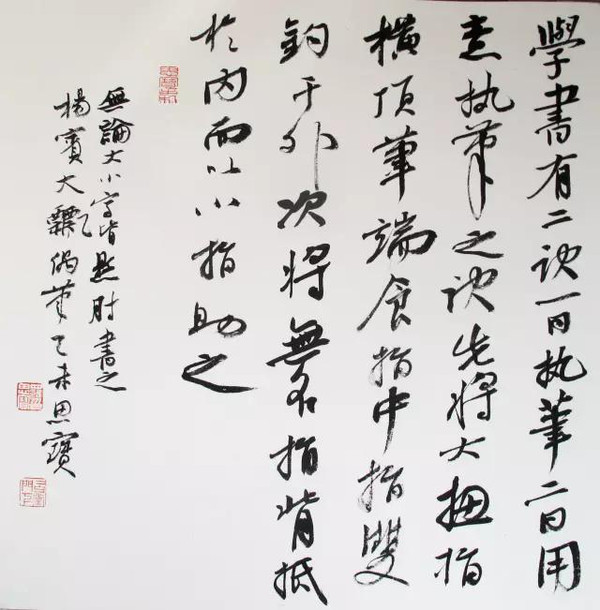 學書有二訣一曰執筆二曰用
意執筆之訣先將大拇指
橫頂筆端食指中指雙
鈎于外次將無名指背抵
於內而以小指助之
無論大小字皆懸肘書之
楊賓大瓢偶筆乙未思寶